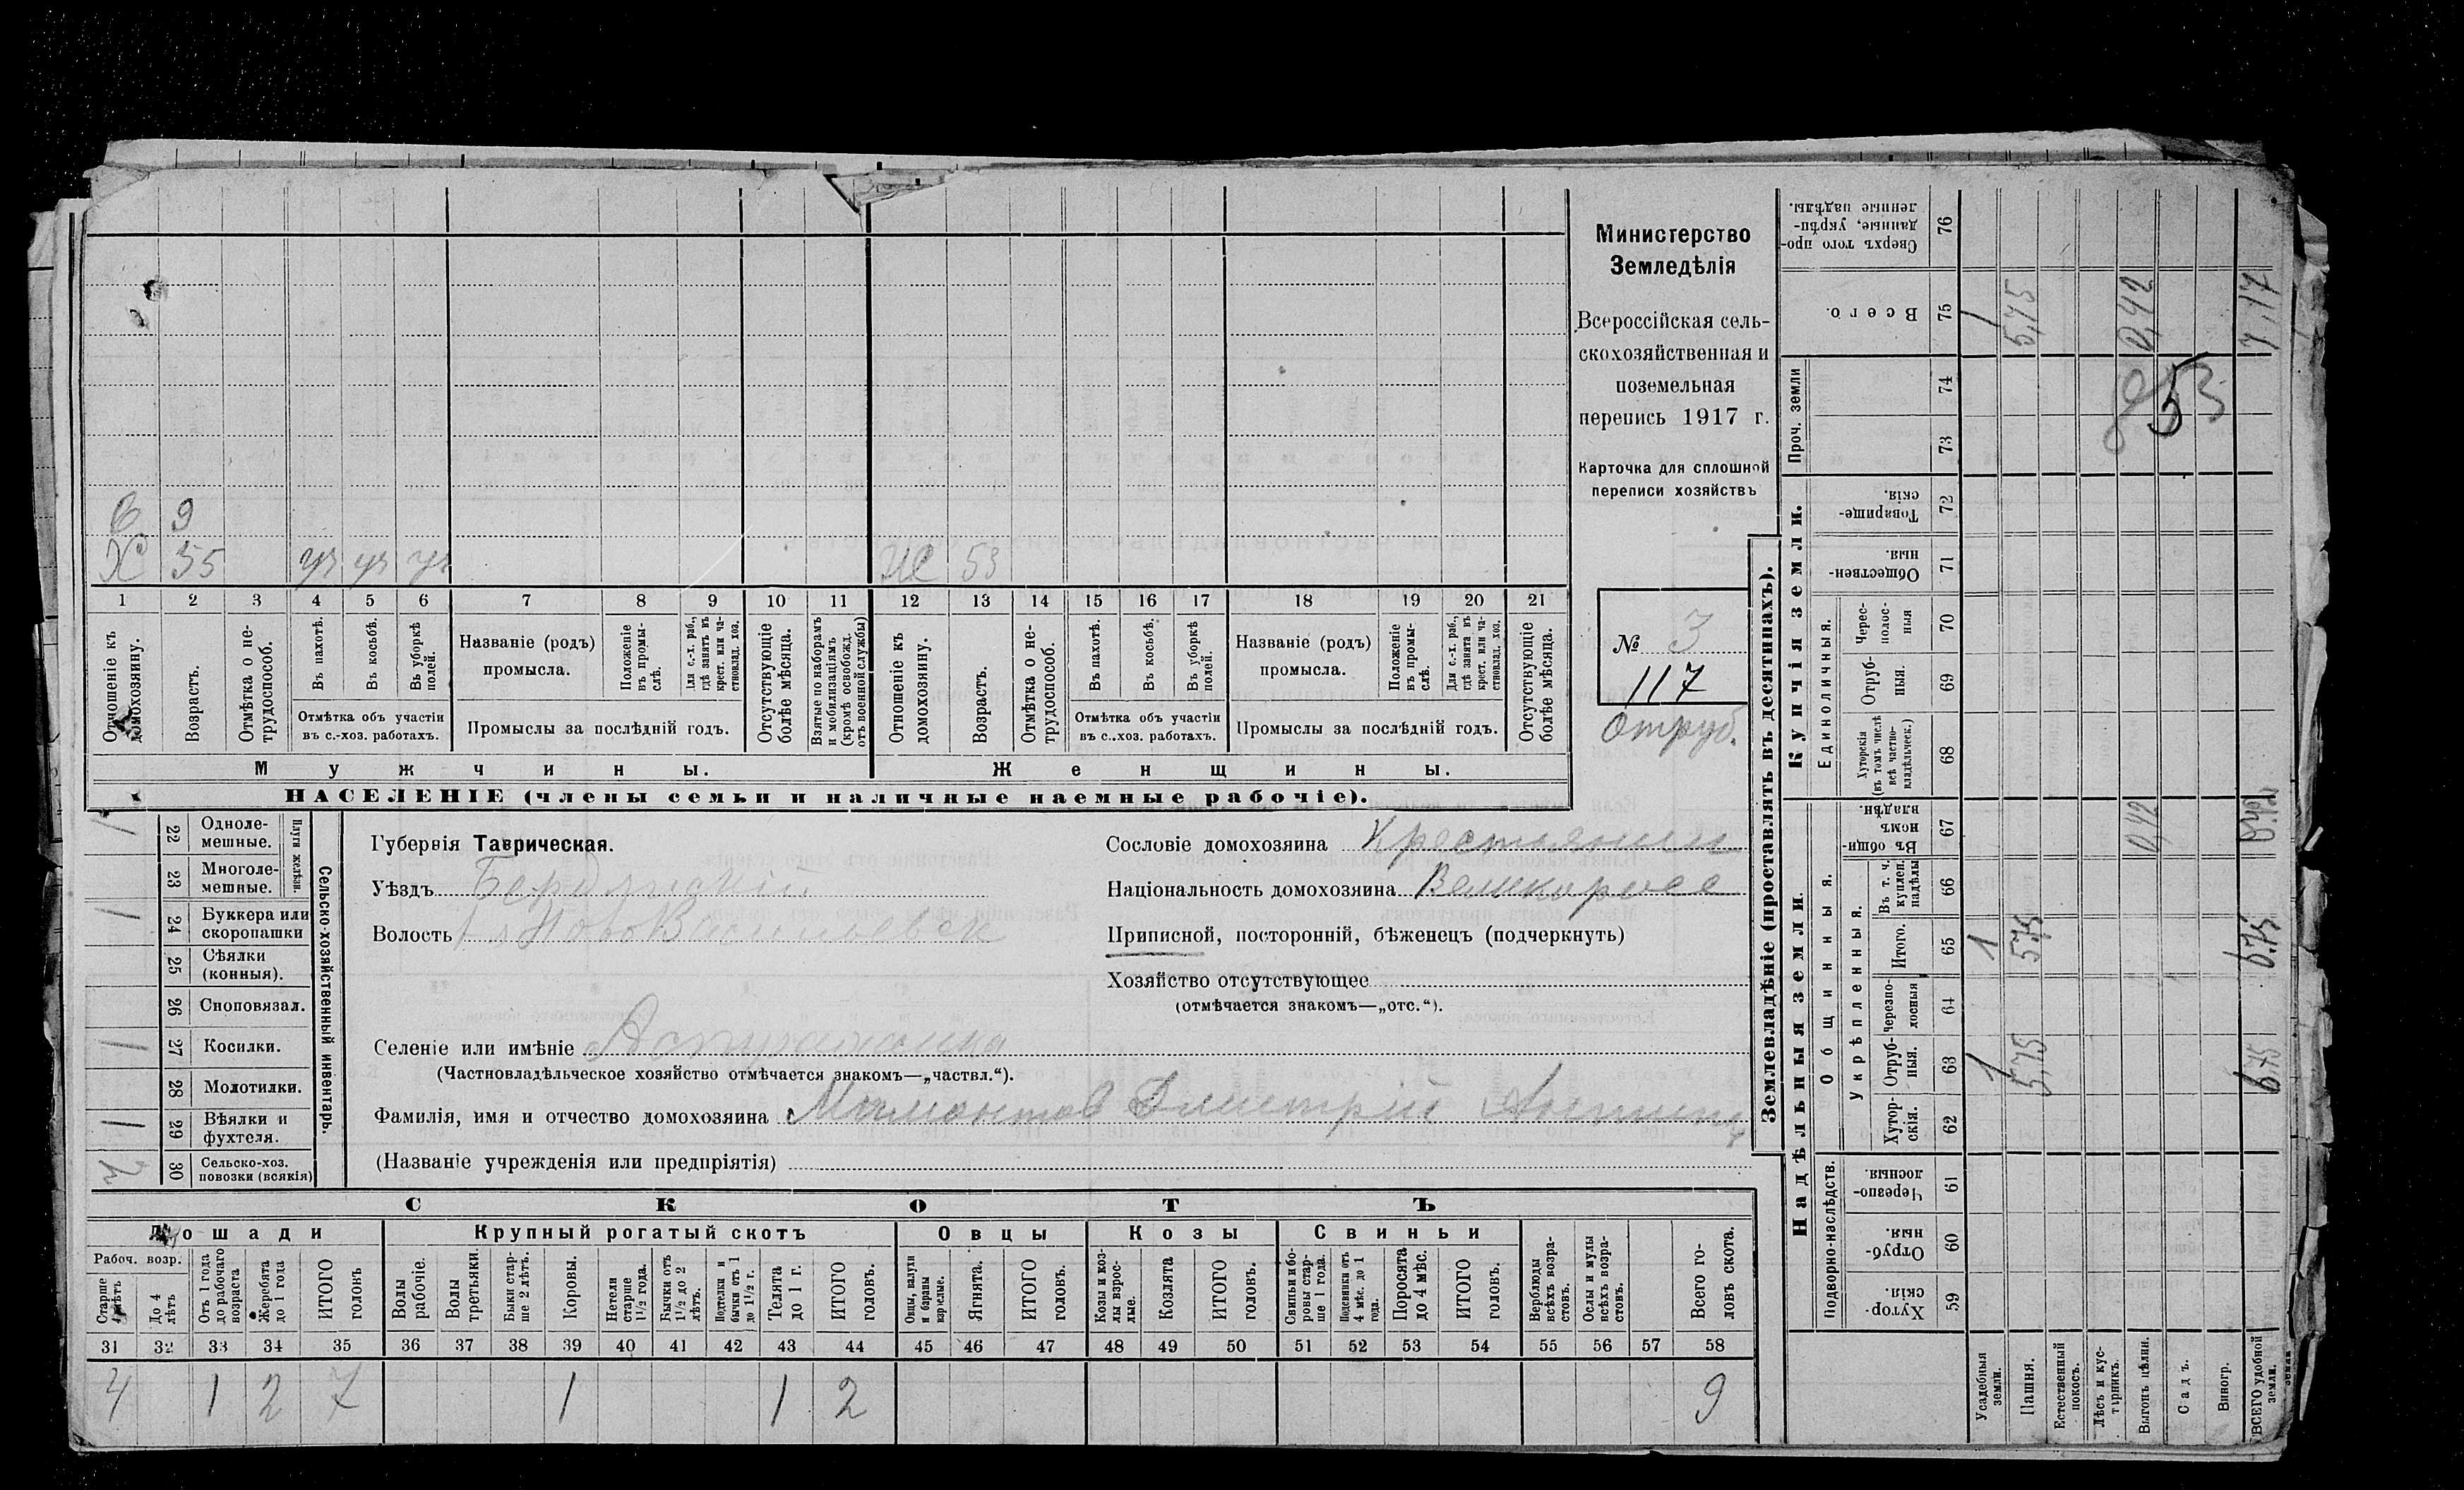 Министерство
Земледѣлія
Всероссійская сель-
скохозяйственная и
поземельная
перепись 1917 г.
Карточка для сплошной
переписи хозяйствъ
№ 3
117
Отруб.
С 9
Х 55 уч уч уч Ж 53
1 2 3 4 5 6 7 8 9 10 11 12 13 14 15 16 17 18 19 20 21
Отношеніе къ домохозяину.
Возрастъ.
Отмѣтка о не-трудоспособ.
Въ пахотѣ.
Въ косьбѣ.
Въ уборкѣ полей.
Отмѣтка объ участіи
въ с.-хоз. работахъ.
Названіе (родъ)
промысла.
Положеніе въ промы-слѣ.
Для с.-х. раб., гдѣ занятъ въ крест. или ча-стновлад. хоз.
Промыслы за послѣдній годъ.
Отсутствующіе болѣе мѣсяца.
Взятые по наборамъ и мобилизаціямъ (кромѣ освобожд. отъ военной службы)
Отношеніе къ домохозяину.
Возрастъ.
Отмѣтка о не-трудоспособ.
Въ пахотѣ.
Въ косьбѣ.
Въ уборкѣ полей.
Отмѣтка объ участіи
въ с.-хоз. работахъ.
Названіе (родъ)
промысла.
Положеніе въ промы-слѣ.
Для с.-х. раб., гдѣ занята въ крест. или ча-стновлад. хоз.
Промыслы за послѣдній годъ.
Отсутствующіе болѣе мѣсяца.
Мужчины.
Женщины.
НАСЕЛЕНІЕ (члены семьи и наличные наемные рабочіе).
Сельско-хозяйственный инвентарь.
Плуги желѣзн.
1 22 Одноле-мешные.
23 Многоле-мешные.
1 24 Буккера или скоропашки
25 Сѣялки (конныя).
26 Сноповязал.
1 27 Косилки.
28 Молотилки.
1 29 Вѣялки и фухтеля.
2 30 Сельско-хоз. повозки (всякія)
Губернія Таврическая.
Уѣздъ Бердянскій
Волость Ново Васильевск
Селеніе или имѣніе Астраханка
(Частновладѣльческое хозяйство отмѣчается знакомъ—„частвл.“).
Фамилія, имя и отчество домохозяина Мамонтов Дмитрій
(Названіе учрежденія или предпріятія)
Сословіе домохозяина Крестьянин
Національность домохозяина Великоросс
Приписной, посторонній, бѣженецъ (подчеркнуть)
Хозяйство отсутствующее
(отмѣчается знакомъ—„отс.“).
СКОТЪ
Лошади
Крупный рогатый скотъ
Овцы
Козы
Свиньи
Рабоч. возр.
Старше 4 лѣтъ
До 4 лѣтъ
Отъ 1 года до рабочаго возраста
Жеребята до 1 года
ИТОГО головъ
Волы рабочіе.
Волы третьяки.
Быки стар-ше 2 лѣтъ.
Коровы.
Нетели старше 1 1/2 года.
Бычки отъ 1 1/2 до 2 лѣтъ.
Подтелки и бычки отъ 1 до 1 1/2 г.
Телята до 1 г.
ИТОГО головъ.
Овцы, валухи и бараны взрослые.
Ягнята.
ИТОГО головъ.
Козы и коз-лы взрос-лые.
Козлята
ИТОГО головъ.
Свиньи и бо-ровы стар-ше 1 года.
Подсвинки отъ 4 мѣс. до 1 года.
Поросята до 4 мѣс.
ИТОГО головъ.
Верблюды всѣхъ возра-стовъ.
Ослы и мулы всѣхъ возра-стовъ.
Всего го-ловъ скота.
31 32 33 34 35 36 37 38 39 40 41 42 43 44 45 46 47 48 49 50 51 52 53 54 55 56 57 58
4 1 2 7 1 1 2 9
Землевладѣніе (проставлять въ десятинахъ).
Надѣльныя земли.
Купчія земли.
Проч. земли
Подворно-наслѣдств.
Общинныя.
Укрѣпленныя.
Единоличныя.
Хутор-скія. 59
Отруб-ныя. 60
Черезпо-лосныя 61
Хутор-скія. 62
Отруб-ныя. 63
Черезпо-лосныя 64
Итого. 65
Въ т. ч. куплен. надѣлы 66
Въ общин-номъ владѣн. 67
Хуторскія (въ томъ числѣ всѣ частно-владѣльческ.) 68
Отруб-ныя. 69
Черес-полос-ныя 70
Обществен-ныя 71
Товарище-скія. 72
73
74
Всего. 75
Сверхъ того про-данные, укрѣп-ленные надѣлы. 76
Усадебныя земли. 1 1 1
Пашня. 5,75 5,75 5,75
Естественный покосъ.
Лѣсъ и кус-тарникъ.
Выгонъ цѣлин. 0,42 0,42
Садъ.
Виногр.
ВСЕГО удобной земли. 6,75 6,75 0,42 7,17
53